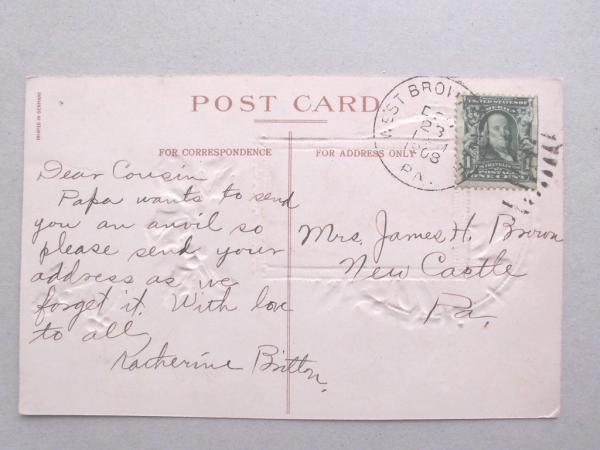 PRINTED IN GERMANY
POST CARD
FOR CORRESPONDENCE
FOR ADDRESS ONLY
WEST BROW
DEC
23
1908
PA.
UNITED STATES OF
AMERICA
1
FRANKLIN
POSTAGE
ONE CENT
Dear Cousin
Papa wants to send
you an anvil so
please send your
address as we
forget it. With love
to all
Katherine Britton.
Mrs. James H. Brown
New Castle
Pa.